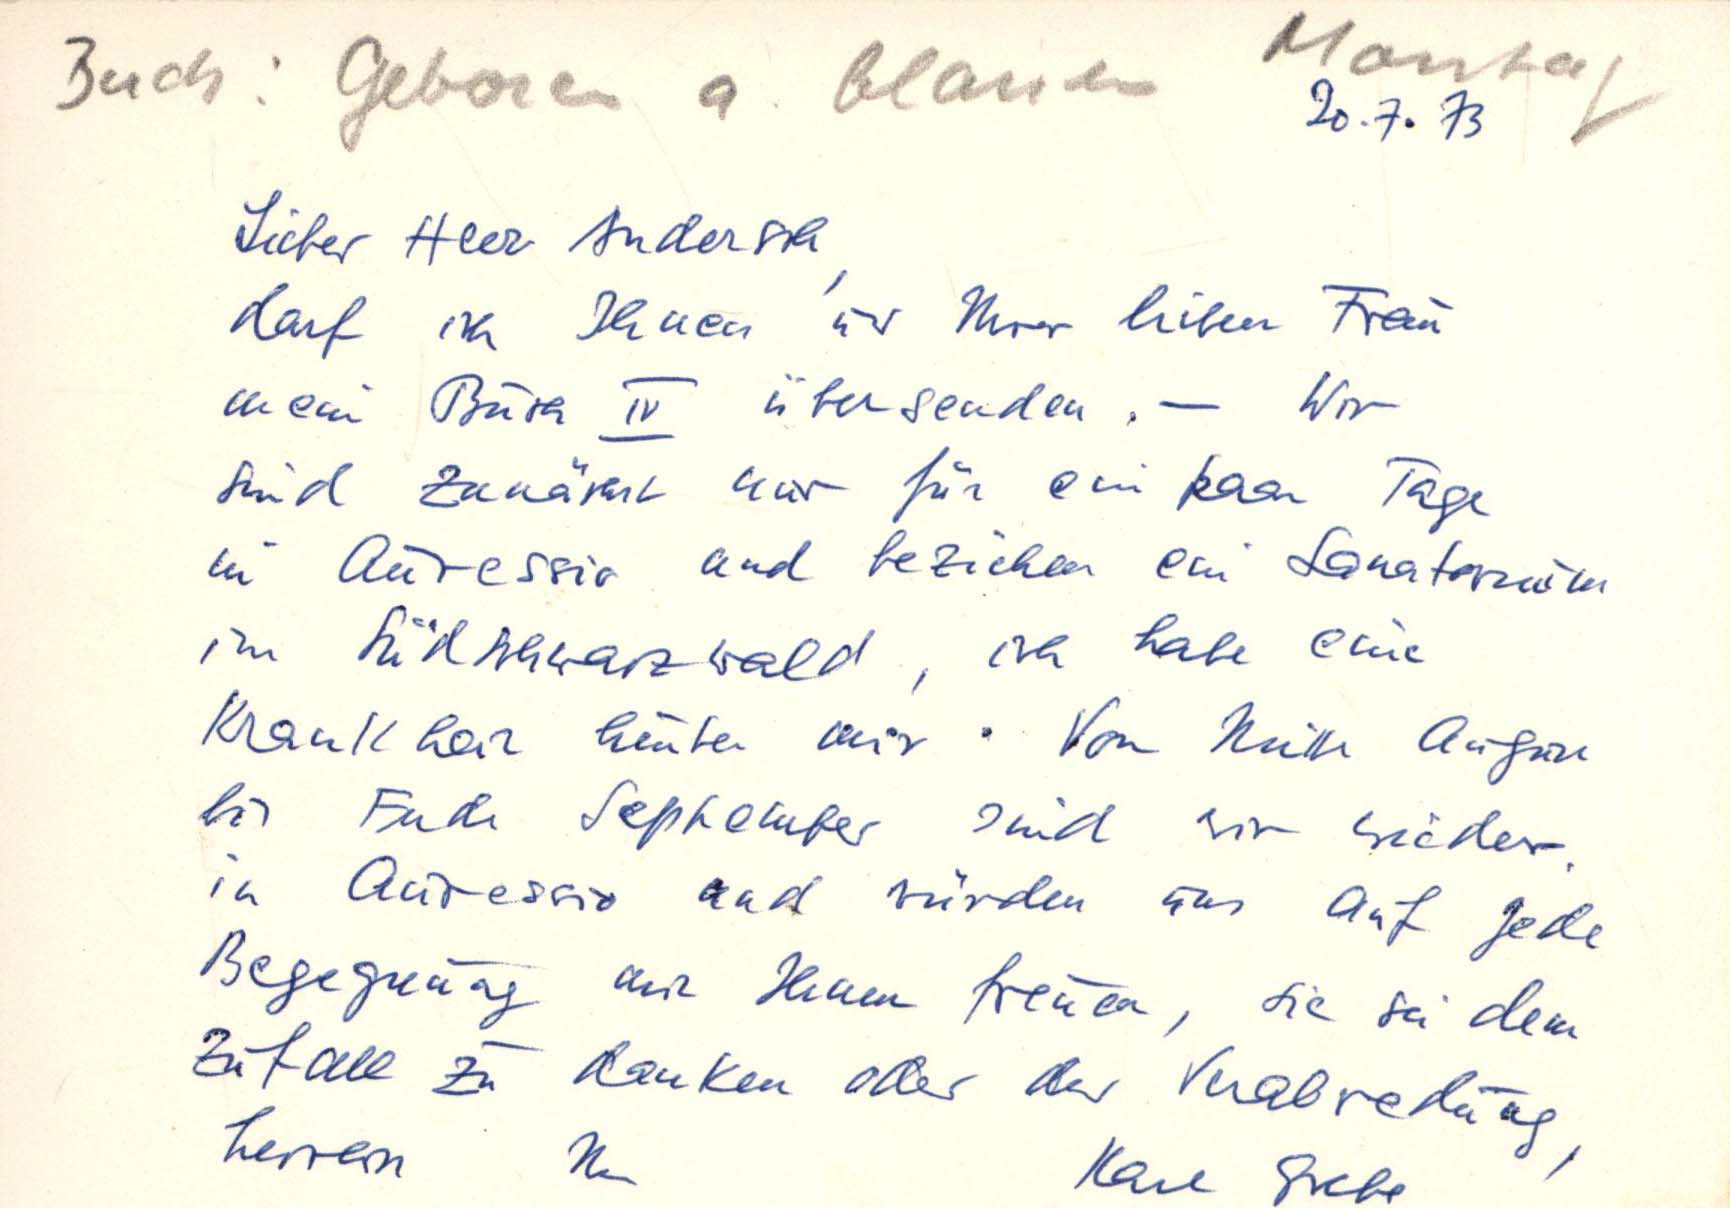 Buch: Geboren a. blauen Montag
20.7.73
Lieber Herr Andersch,
darf ich Ihnen und Ihrer lieben Frau
mein Buch IV übersenden. — Wir
sind zunächst nur für ein paar Tage
in Auressio und beziehen ein Sanatorium
im Südschwarzwald, ich habe eine
Krankheit hinter mir. Von Mitte August
bis Ende September sind wir wieder
in Auressio und würden uns auf jede
Begegnung mit Ihnen freuen, sie sei dem
Zufall zu danken oder der Verabredung,
herzlich Ihr Karl Grebe